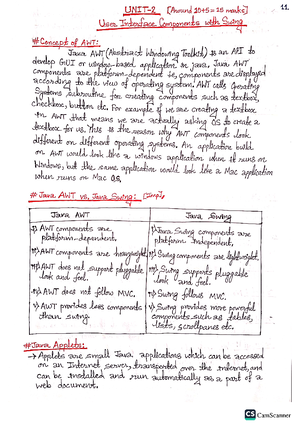 11.
UNIT-2 [Around 10+5=15 marks]
User Interface Components with Swing
# Concept of AWT:
Java AWT (Abstract Windowing Toolkit) is an API to
develop GUI or window-based application in java. Java AWT
components are platform-dependent i.e, components are displayed
according to the view of operating system. AWT calls Operating
Systems subroutine for creating components such as textbox,
checkbox, button etc. For example if we are creating a textbox
in AWT that means we are actually asking OS to create a
textbox for us. This is the reason why AWT components look
different on different operating systems. An application build
on AWT would look like a windows application when it runs on
Windows, but the same application would look like a Mac application
when runs on Mac OS.
# Java AWT vs. Java Swing: [Imp]
Java AWT
Java Swing
i) AWT components are
platform-dependent.
i) Java Swing components are
platform independent.
ii) AWT components are heavyweight.
ii) Swing components are lightweight.
iii) AWT does not support pluggable
look and feel.
iii) Swing supports pluggable
look and feel.
iv) AWT does not follow MVC.
iv) Swing follows MVC.
v) AWT provides less components
than swing
v) Swing provides more powerful
components such as tables,
lists, scrollpanes etc.
# Java Applets:
→ Applets are small Java applications which can be accessed
on an Internet server, transported over the internet, and
can be installed and run automatically as a part of a
web document.
CS CamScanner